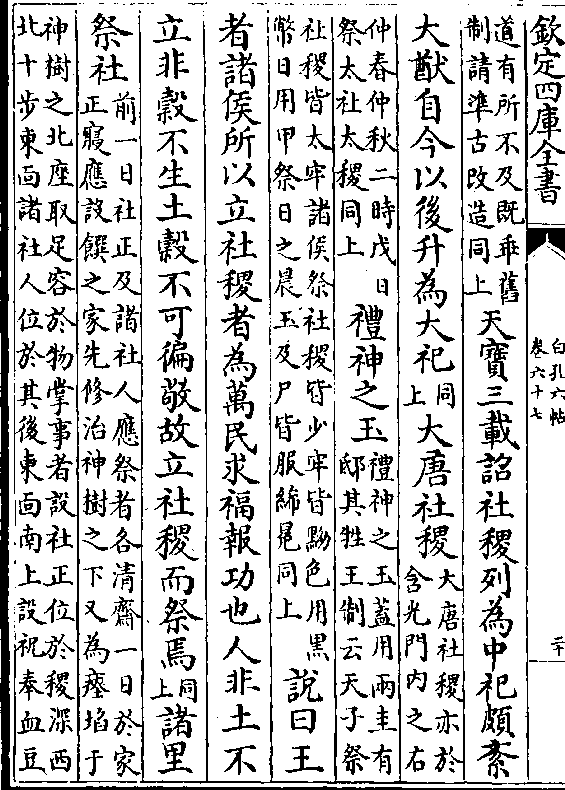 欽定四庫全書
白孔六帖
卷六十七
二十
道有所不及既乖舊
制請準古改造同上
天寶三載詔社稷列為中祀頗紊
大猷自今以後升為大祀
同
上
大唐社稷
大唐社稷亦於
含光門内之右
仲春仲秋二時戊日
祭太社太稷同上
禮神之玉
禮神之玉蓋用兩圭有
邸其牲王制云天子祭
社稷皆太牢諸侯祭社稷皆少牢皆黝色用黑
幣日用甲祭日之晨王及尸皆服絺冕同上
說曰王
者諸侯所以立社稷者為萬民求福報功也人非土不
立非穀不生土穀不可徧敬故立社稷而祭焉
同
上
諸里
祭社
前一日社正及諸社人應祭者各清齋一日於家
正寢應設饌之家先修治神樹之下又為瘞埳于
神樹之北座取足容於物掌事者設社正位於稷深西
北十步東面諸社人位於其後東面南上設祝奉血豆